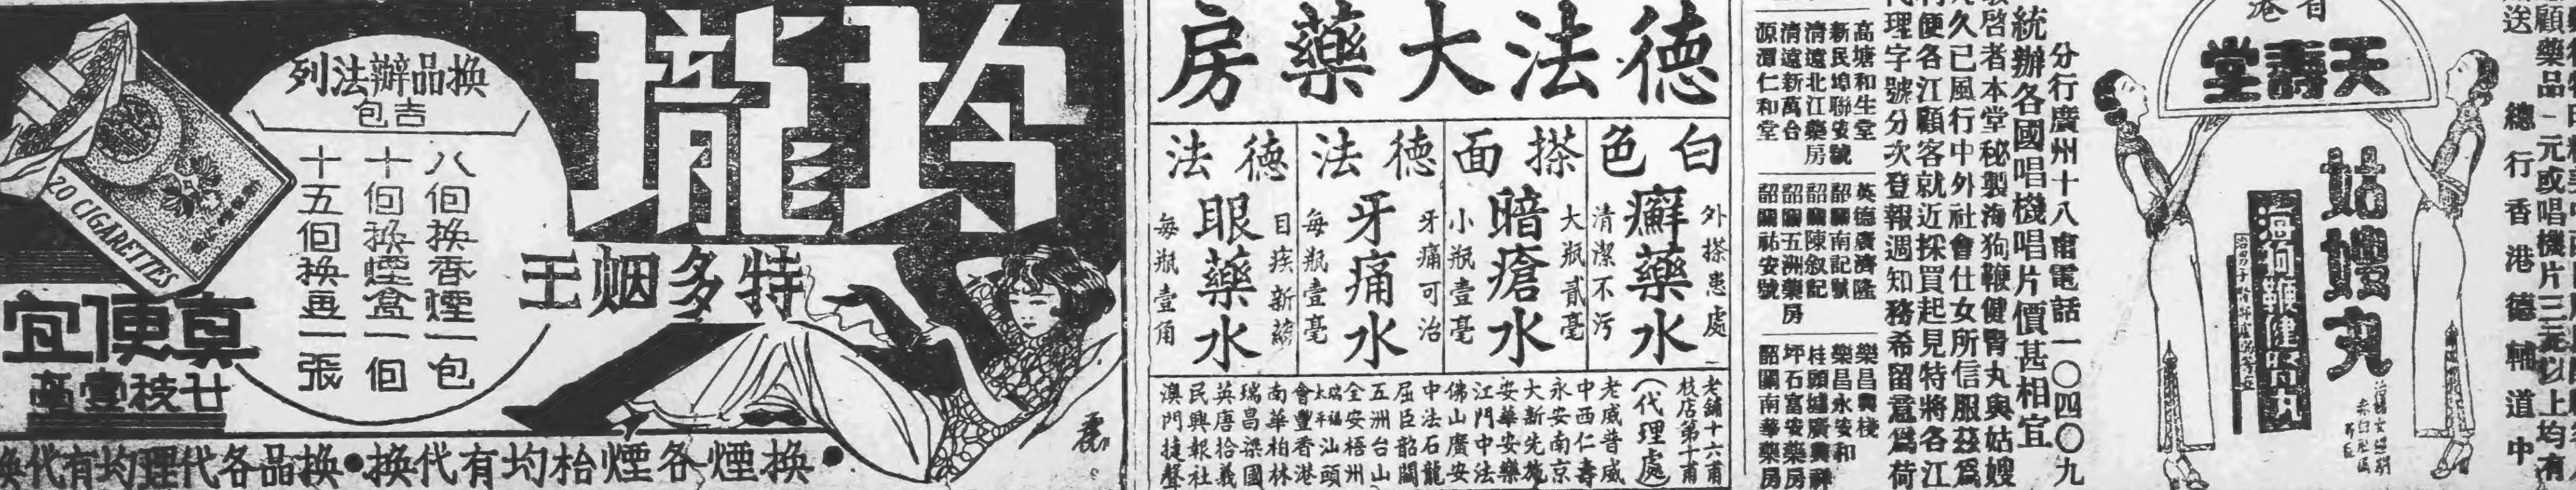 玲瓏
特多烟王
換品辦法列
吉包
八個換香煙一包
十個換煙盒一個
十五個換再一張
20 CIGARETTES
真便宜
廿枝壹毫
換煙各煙枱均有代換●換品各代理均有代換
德法大藥房
白色癬藥水
外搽患處
清潔不污
搽面暗瘡水
大瓶貳毫
小瓶壹毫
德法牙痛水
牙痛可治
每瓶壹毫
德法眼藥水
目疾新
每瓶壹角
老鋪十六甫
枝店第十甫
(代理處)
老威普威
中西仁壽
永安南京
大新先施
安華安樂
江門中法
佛山廣安
中法石龍
屈臣韶關
五洲台山
全安梧州
瑞福汕頭
太平
會豐香港
南華柏林
瑞昌梁國
英唐拾義
民興報社
澳門捷聲
高塘和生堂
新民埠聯安號
清遠北江藥房
清遠新萬合
源潭仁和堂
英德廣濟隆
韶關南記號
韶關陳叙記
韶關五洲藥房
韶關祐安號
樂昌興棧
樂昌永安和
桂頭墟廣興祥
坪石富安藥房
韶關南華藥房
分行廣州十八甫電話一〇四〇九
統辦各國唱機唱片價甚相宜
啓者本堂秘製海狗鞭健腎丸與姑嫂
久已風行中外社會仕女所信服茲爲
利便各江顧客就近採買起見特將各江
代理字號分次登報週知務希留意爲荷
省港
天壽堂
姑嫂丸
海狗鞭健腎丸
總行香港德輔道中
顧藥品一元或唱機片三元以上均有
送